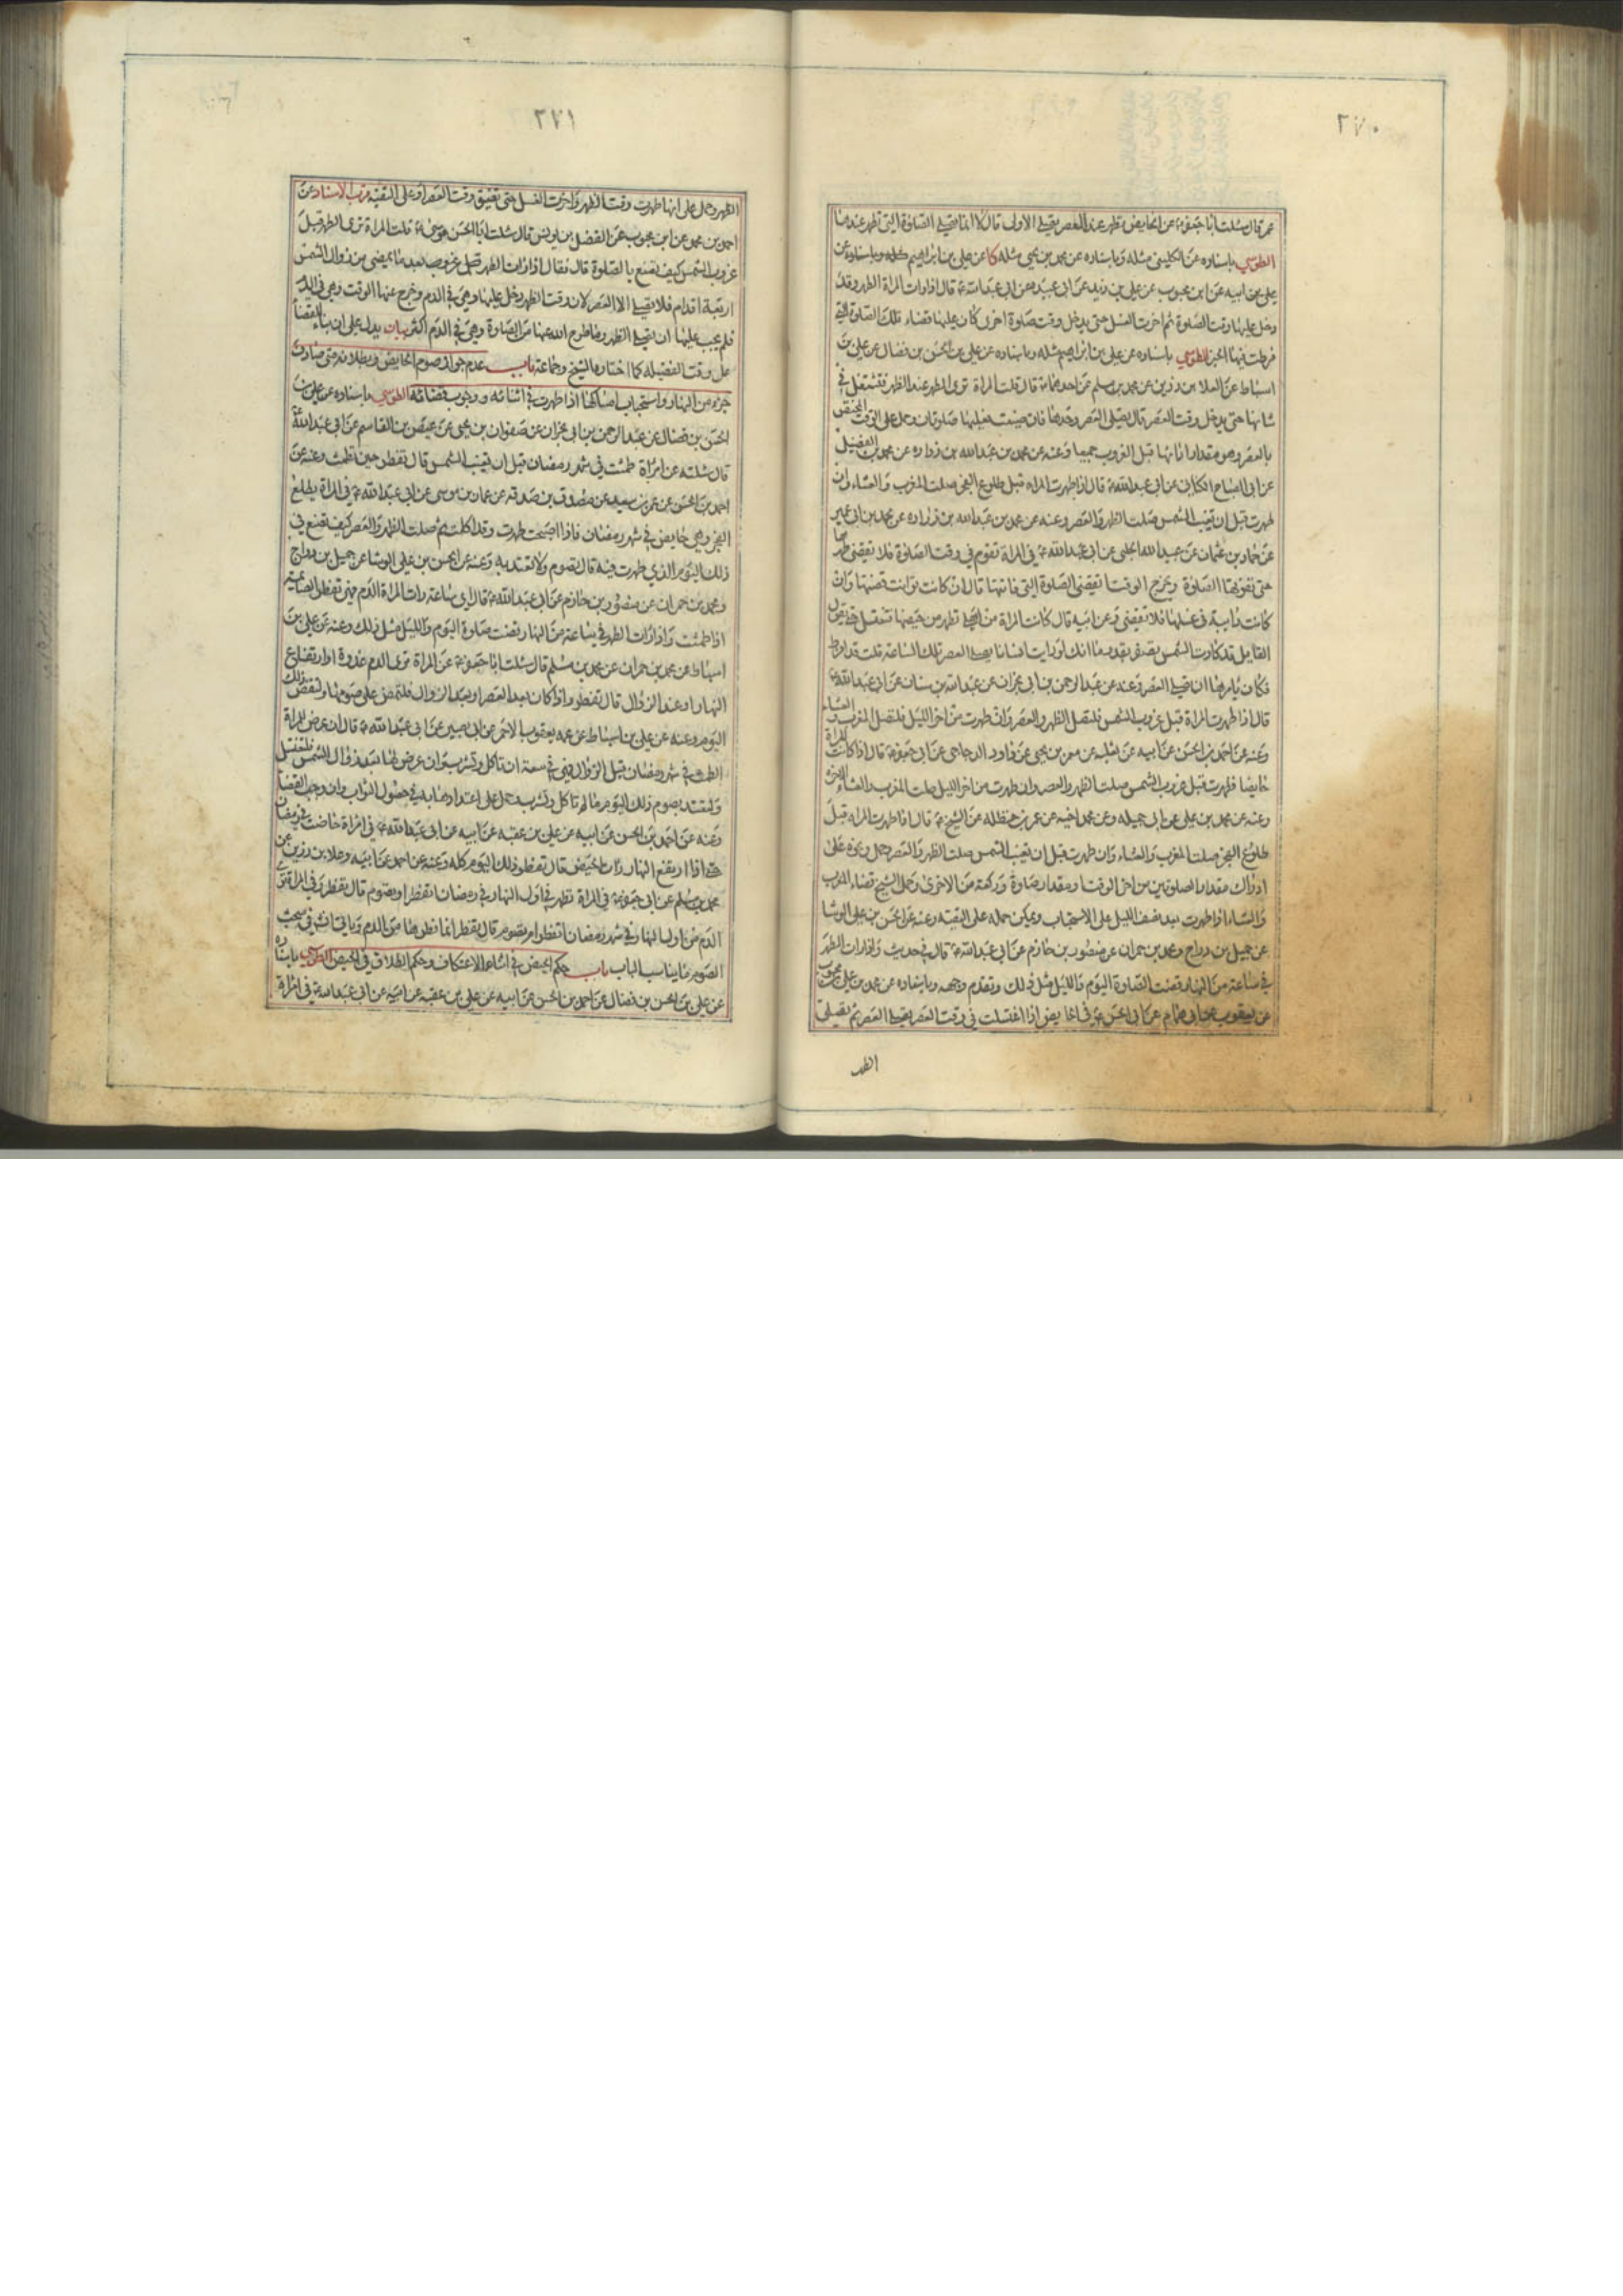 ٢٧٠
عمر قال سئلت ابا جعفر ع عن الحايض تطهر عند العصر تصلى الاولى قال لا انما تصلى الصلوة التى تطهر عندها
الطوسي باسناده عن الكلينى مثله وباسناده عن محمد بن يحيى مثله كا عن على بن ابراهيم
على بن ابيه عن ابن محبوب عن على بن عن ابى عبيدة عن ابى عبد الله ع قال اذا رات المراة الطهر وقد
دخل عليها وقت الصلوة ثم اخرت الغسل حتى يدخل وقت صلوة اخرى كان عليها قضاء تلك الصلوة التى
فرطت فيها الخبر الطوسي باسناده عن على بن ابراهيم مثله وباسناده عن على بن الحسن بن فضال عن على بن
اسباط عن العلا بن رزين عن محمد بن مسلم عن احدهما ع قال قلت المراة ترى الطهر عند الظهر فتشتغل فى
شانها حتى يدخل وقت العصر قال تصلى العصر وحدها فان ضيعت فعليها صلوتان وحمل على الوقت المختص
بالعصر وهو مقدار اتيانها قبل الغروب جميعا وعنه عن محمد بن عبد الله بن زراره عن محمد بن الفضيل
عن ابى الصباح الكنانى عن ابى عبد الله ع قال اذا طهرت المراه قبل طلوع الفجر صلت المغرب والعشاء وان
طهرت قبل ان تغيب الشمس صلت الظهر والعصر وعنه عن محمد بن عبد الله بن زراره عن محمد بن ابى عمير
عن حماد بن عثمان عن عبيد الله الحلبى عن ابى عبد الله ع فى المراة تقوم فى وقت الصلوة فلا تقضى طهرها
حتى تفوتها الصلوة ويخرج الوقت اتقضى الصلوة التى فاتتها قال ان كانت توانت قضتها وان
كانت دائبة فى غسلها فلا تقضى وعن ابيه قال كانت المراة من اهلى تطهر من حيضها فتغتسل حتى يقول
القايل قد كادت الشمس تصفر بقدر ما انك لو رايت انسانا يصلى العصر تلك الساعة قلت قد افرط
فكان يامرها ان تصلى العصر وعنه عن عبد الرحمن بن ابى نجران عن عبد الله بن سنان عن ابى عبد الله ع
قال اذا طهرت المراة قبل غروب الشمس فلتصل الظهر والعصر وان طهرت من اخر الليل فلتصل المغرب والعشاء
وعنه عن احمد بن الحسن عن ابيه عن ثعلبه عن معمر بن يحيى عن داود الدجاجى عن ابى جعفر ع قال اذا كانت المراة
حايضا فطهرت قبل غروب الشمس صلت الظهر والعصر وان طهرت من اخر الليل صلت المغرب والعشاء الاخرة
وعنه عن محمد بن على عن ابى جميله وعن محمد اخيه عن عمر بن حنظله عن الشيخ ع قال اذا طهرت المراه قبل
طلوع الفجر صلت المغرب والعشاء وان طهرت قبل ان تغيب الشمس صلت الظهر والعصر حمل ونحوه على
ادراك مقدار الصلوتين من اخر الوقت او مقدار صلوة وركعة من الاخرى وحمل الشيخ قضاء المغرب
والعشاء اذا طهرت بعد نصف الليل على الاستحباب ويمكن حمله على التقيه وعنه عن الحسن بن على الوشا
عن جميل بن دراج ومحمد بن حمران عن منصور بن حازم عن ابى عبد الله ع قال فى حديث واذا رات الطهر
فى ساعة من النهار قضت الصلوة اليوم والليل مثل ذلك وتقدم وجهه وباسناده عن محمد بن على بن محبوب
عن يعقوب عن ابى همام عن ابى الحسن ع فى الحايض اذا اغتسلت فى وقت العصر تصلى العصر ثم تصلى
الظهر
٢٧١
الظهر وحمل على انها طهرت وقت الظهر واخرت الغسل حتى تضيق وقت العصر او على التقيه قرب الاسناد عن
احمد بن محمد عن ابن محبوب عن الفضل بن يونس قال سئلت ابا الحسن موسى ع قلت المراة ترى الطهر قبل
غروب الشمس كيف تصنع بالصلوة قال فقال اذا رات الطهر بعد ما يمضى من زوال الشمس
اربعة اقدام فلا تصلى الا العصر لان وقت الظهر دخل عليها وهى فى الدم وخرج عنها الوقت وهى فى الدم
فلم يجب عليها ان تصلى الظهر وما طرح الله عنها من الصلوة وهى فى الدم اكثر بيان يدل على ان بناء القضا
على وقت الفضيله كما اختاره الشيخ وجماعة باب عدم جواز صوم الحايض وبطلانه متى صادف
جزء من النهار واستحباب امساكها اذا طهرت فى اثنائه ووجوب قضائه الطوسي باسناده عن على بن
الحسن بن فضال عن عبد الرحمن بن ابى نجران عن صفوان بن يحيى عن عيص بن القاسم عن ابى عبد الله ع
قال سئلته عن امراة طمثت فى شهر رمضان قبل ان تغيب الشمس قال تفطر حين تطمث وعنه عن
احمد بن الحسن عن عمرو بن سعيد عن مصدق بن صدقه عن عمار بن موسى عن ابى عبد الله ع فى المراة يطلع
الفجر وهى حايض فى شهر رمضان فاذا اصبحت طهرت وقد اكلت ثم صلت الظهر والعصر كيف تصنع فى
ذلك اليوم الذى طهرت فيه قال تصوم ولا تعتد به وعنه عن الحسن بن على الوشا عن جميل بن دراج
ومحمد بن حمران عن منصور بن حازم عن ابى عبد الله ع قال اى ساعة رات المراة الدم فهى تفطر الصائمة
اذا طمثت واذا رات الطهر فى ساعة من النهار قضت صلوة اليوم والليل مثل ذلك وعنه عن على بن
اسباط عن محمد بن حمران عن محمد بن مسلم قال سئلت ابا جعفر ع عن المراة ترى الدم غدوة او ارتفاع
النهار او عند الزوال قال تفطر واذا كان بعد العصر او بعد الزوال فلتمض على صومها ولتقض ذلك
اليوم وعنه عن على بن اسباط عن عمه يعقوب الاحمر عن ابى بصير عن ابى عبد الله ع قال ان عرض للمراة
الطمث فى شهر رمضان قبل الزوال فهى فى سعة ان تاكل وتشرب وان عرض لها بعد زوال الشمس فلتغتسل
ولتعتد بصوم ذلك اليوم ما لم تاكل وتشرب حمل على اعتدادها به فى حصول الثواب وان وجب القضا
وعنه عن احمد بن الحسن عن ابيه عن على بن عقبه عن ابيه عن ابى عبد الله ع فى امراة حاضت فى رمضان
حتى اذا ارتفع النهار رات الحيض قال تفطر ذلك اليوم كله وعنه عن احمد عن ابيه وعلا بن رزين عن
محمد بن مسلم عن ابى جعفر ع فى المراة تطهر فى اول النهار فى رمضان اتفطر او تصوم قال تفطر وفى المراة ترى
الدم من اول النهار فى شهر رمضان اتفطر ام تصوم قال تفطر انما فطرها من الدم وياتى انشء فى مبحث
الصوم ما يناسب الباب باب حكم الحيض فى اثناء الاعتكاف وحكم الطلاق فى الحيض الطوسي باسناده
عن على بن الحسن بن فضال عن احمد بن الحسن عن ابيه عن على بن عقبه عن ابيه عن ابى عبد الله ع فى امراة